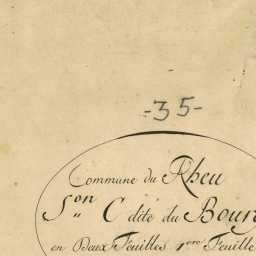 -35-
Commune du Rheu
S.on C dite du Bourg
en Deux Feuilles 1.ere Feuille